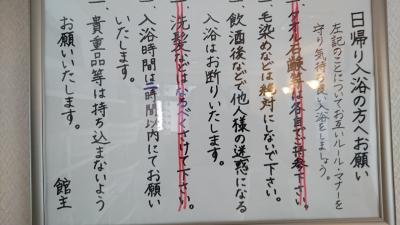 日帰り入浴の方へお願い
左記のことについてお互いルール・マナーを
守り気持ち良い入浴をしましょう。
一、タオル石鹸等は各自でご持参下さい。
一、毛染めなどは絶対にしないで下さい。
一、飲酒後などで他人様の迷惑になる
入浴はお断りいたします。
一、洗髪などはなるべくさけて下さい。
一、入浴時間は二時間以内にてお願い
いたします。
一、貴重品等は持ち込まないよう
お願いいたします。
館主